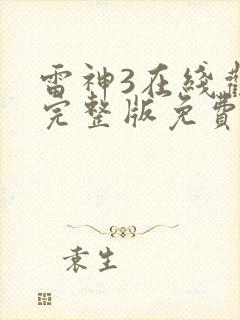 雷神3在线
完整版免费
袁生